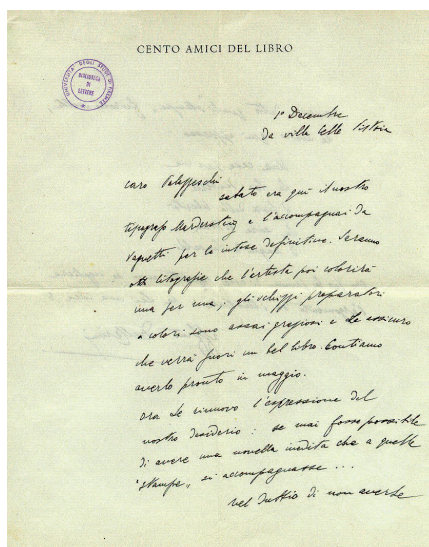 CENTO AMICI DEL LIBRO
UNIVERSITÀ DEGLI STUDI DI FIRENZE
BIBLIOTECA
DI
LETTERE
1° Decembre
da villa Celle Pistoia
caro Palazzeschi
sabato era qui il nostro
tipografo Mardersteig e l'accompagnai da
Vagnetti per le intese definitive. Saranno
otto litografie che l'artista poi colorirà
una per una; gli schizzi preparatori
a colori sono assai graziosi e Le assicuro
che verrà fuori un bel libro. Contiamo
averlo pronto in maggio.
Ora Le rinnovo l'espressione del
nostro desiderio: se mai fosse possibile
di avere una novella inedita che a quelle
"stampe" si accompagnasse...
nel dubbio di non averle